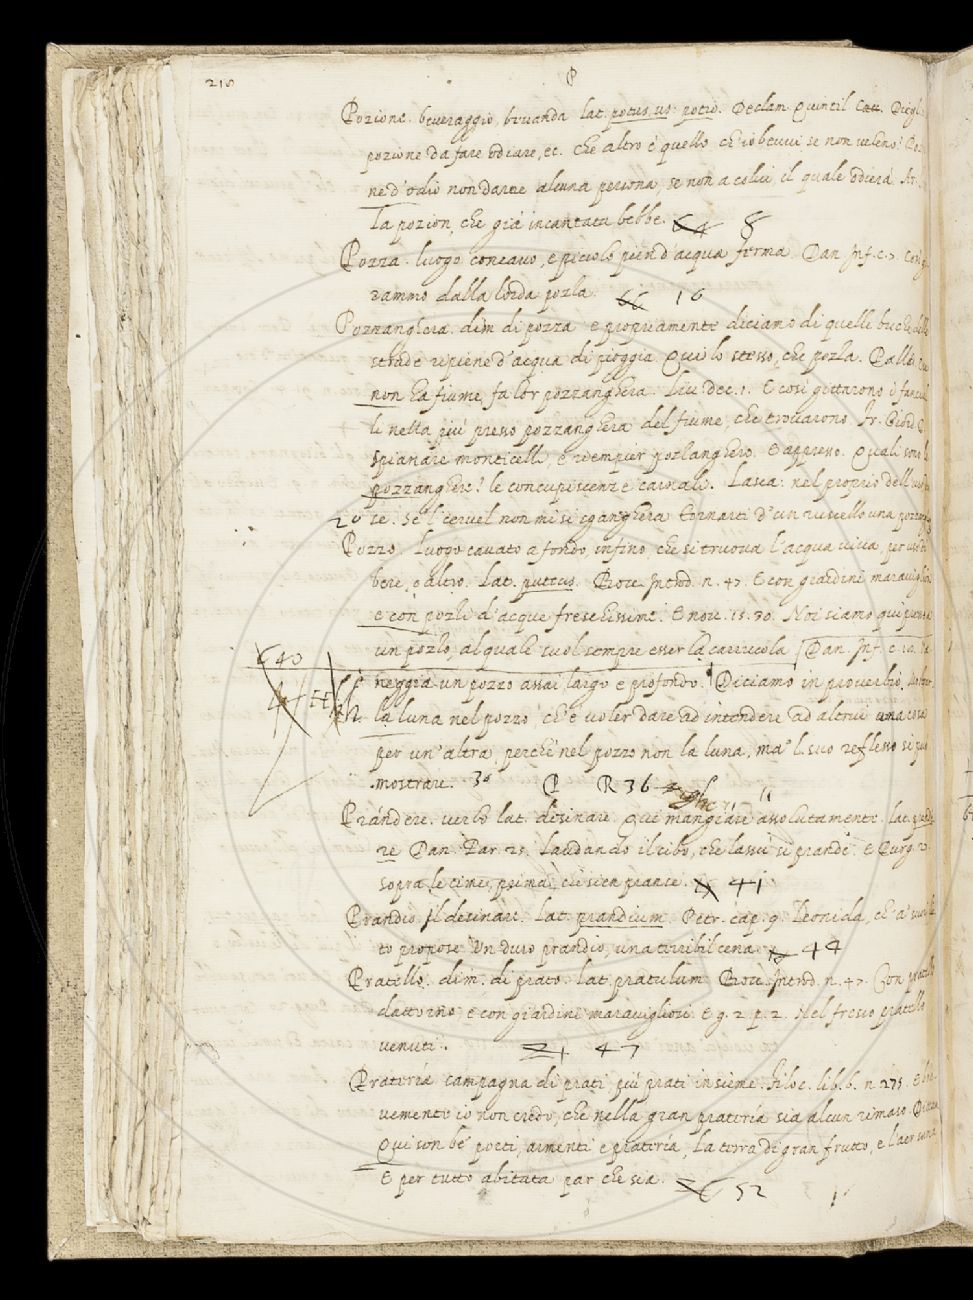 218
P
Pozione. beveraggio, bevanda lat. potus, us. potio. Declam. Quintil. C.
pozione da fare odiare, et. che altro è quello ch'io bevvi se non veleno?
ne d'odio non darete alcuna persona, se non a colui, il quale odierà. Ar.
La pozion, che già incantata bebbe. 64 8
Pozza. luogo concavo, e picciolo pien d'acqua ferma. Dan. Inf. c. 7. Così
rammo dalla lorda pozza. 66 16
Pozzanghera. dim. di pozza e propriamente diciamo di quelle buche delle
strade ripiene d'acqua di pioggia. Qui lo stesso, che pozza. Pallad.
non ha fiume, fa lor pozzanghera. Liv. dec. 1. E così gittarono i fanciul
li nella più presso pozzanghera del fiume, che trovarono. Fr. Giord.
spianare monticelli, e riempier pozzanghere. E appresso. Quali sono le
pozzanghere? le concupiscenze carnali. Lasca. nel proprio dell'
20 re. Se 'l cervel non mi si sganghera Tornarti d'un ruscello una pozzang
Pozzo. Luogo cavato a fondo, infino, che si truova l'acqua viva, per uso di
bere, o altro. Lat. puteus. Bocc. Introd. n. 47. E con giardini maravigliosi
e con pozzi d'acque freschissime. E nov. 15. 30. Noi siamo qui presso a
un pozzo, al quale suol sempre esser la carrucola Dan. Inf. c. 18. Va
640
neggia un pozzo assai largo e profondo. Diciamo in proverbio,
la luna nel pozzo ch'è voler dare ad intendere ad altrui una cosa
per un'altra, perchè nel pozzo non la luna, ma 'l suo reflesso si può
mostrare. 30 P R 36
Prándere. verbo lat. desinare. Qui mangiáre assolutamente. lat. prande
re Dan. Par. 25. Laudando il cibo, che lassù si prande. E Purg. 27.
sopra le cime, prima, che sien pranse. 41
Prandio. Il desinare. Lat. prandium. Petr. cap. 9. Leonida, ch'a' suoi lie
to propose Un duro prandio, una terribil cena. 44
Pratello. dim. di prato. lat. pratulum Bocc. Introd. n. 47. Con pratelli
dattorno, e con giardini maravigliosi. E g. 2. p. 2. Nel fresco pratello
venuti. 21 47
Prateria campagna di prati. più prati insieme. Filoc. lib. 6. n. 275. E bre
vemente io non credo, che nella gran prateria sia alcun rimaso.
Qui son be' porti, armenti e prateria, La terra di gran frutto, e l'aer sana
E per tutto abitata par che sia. 52